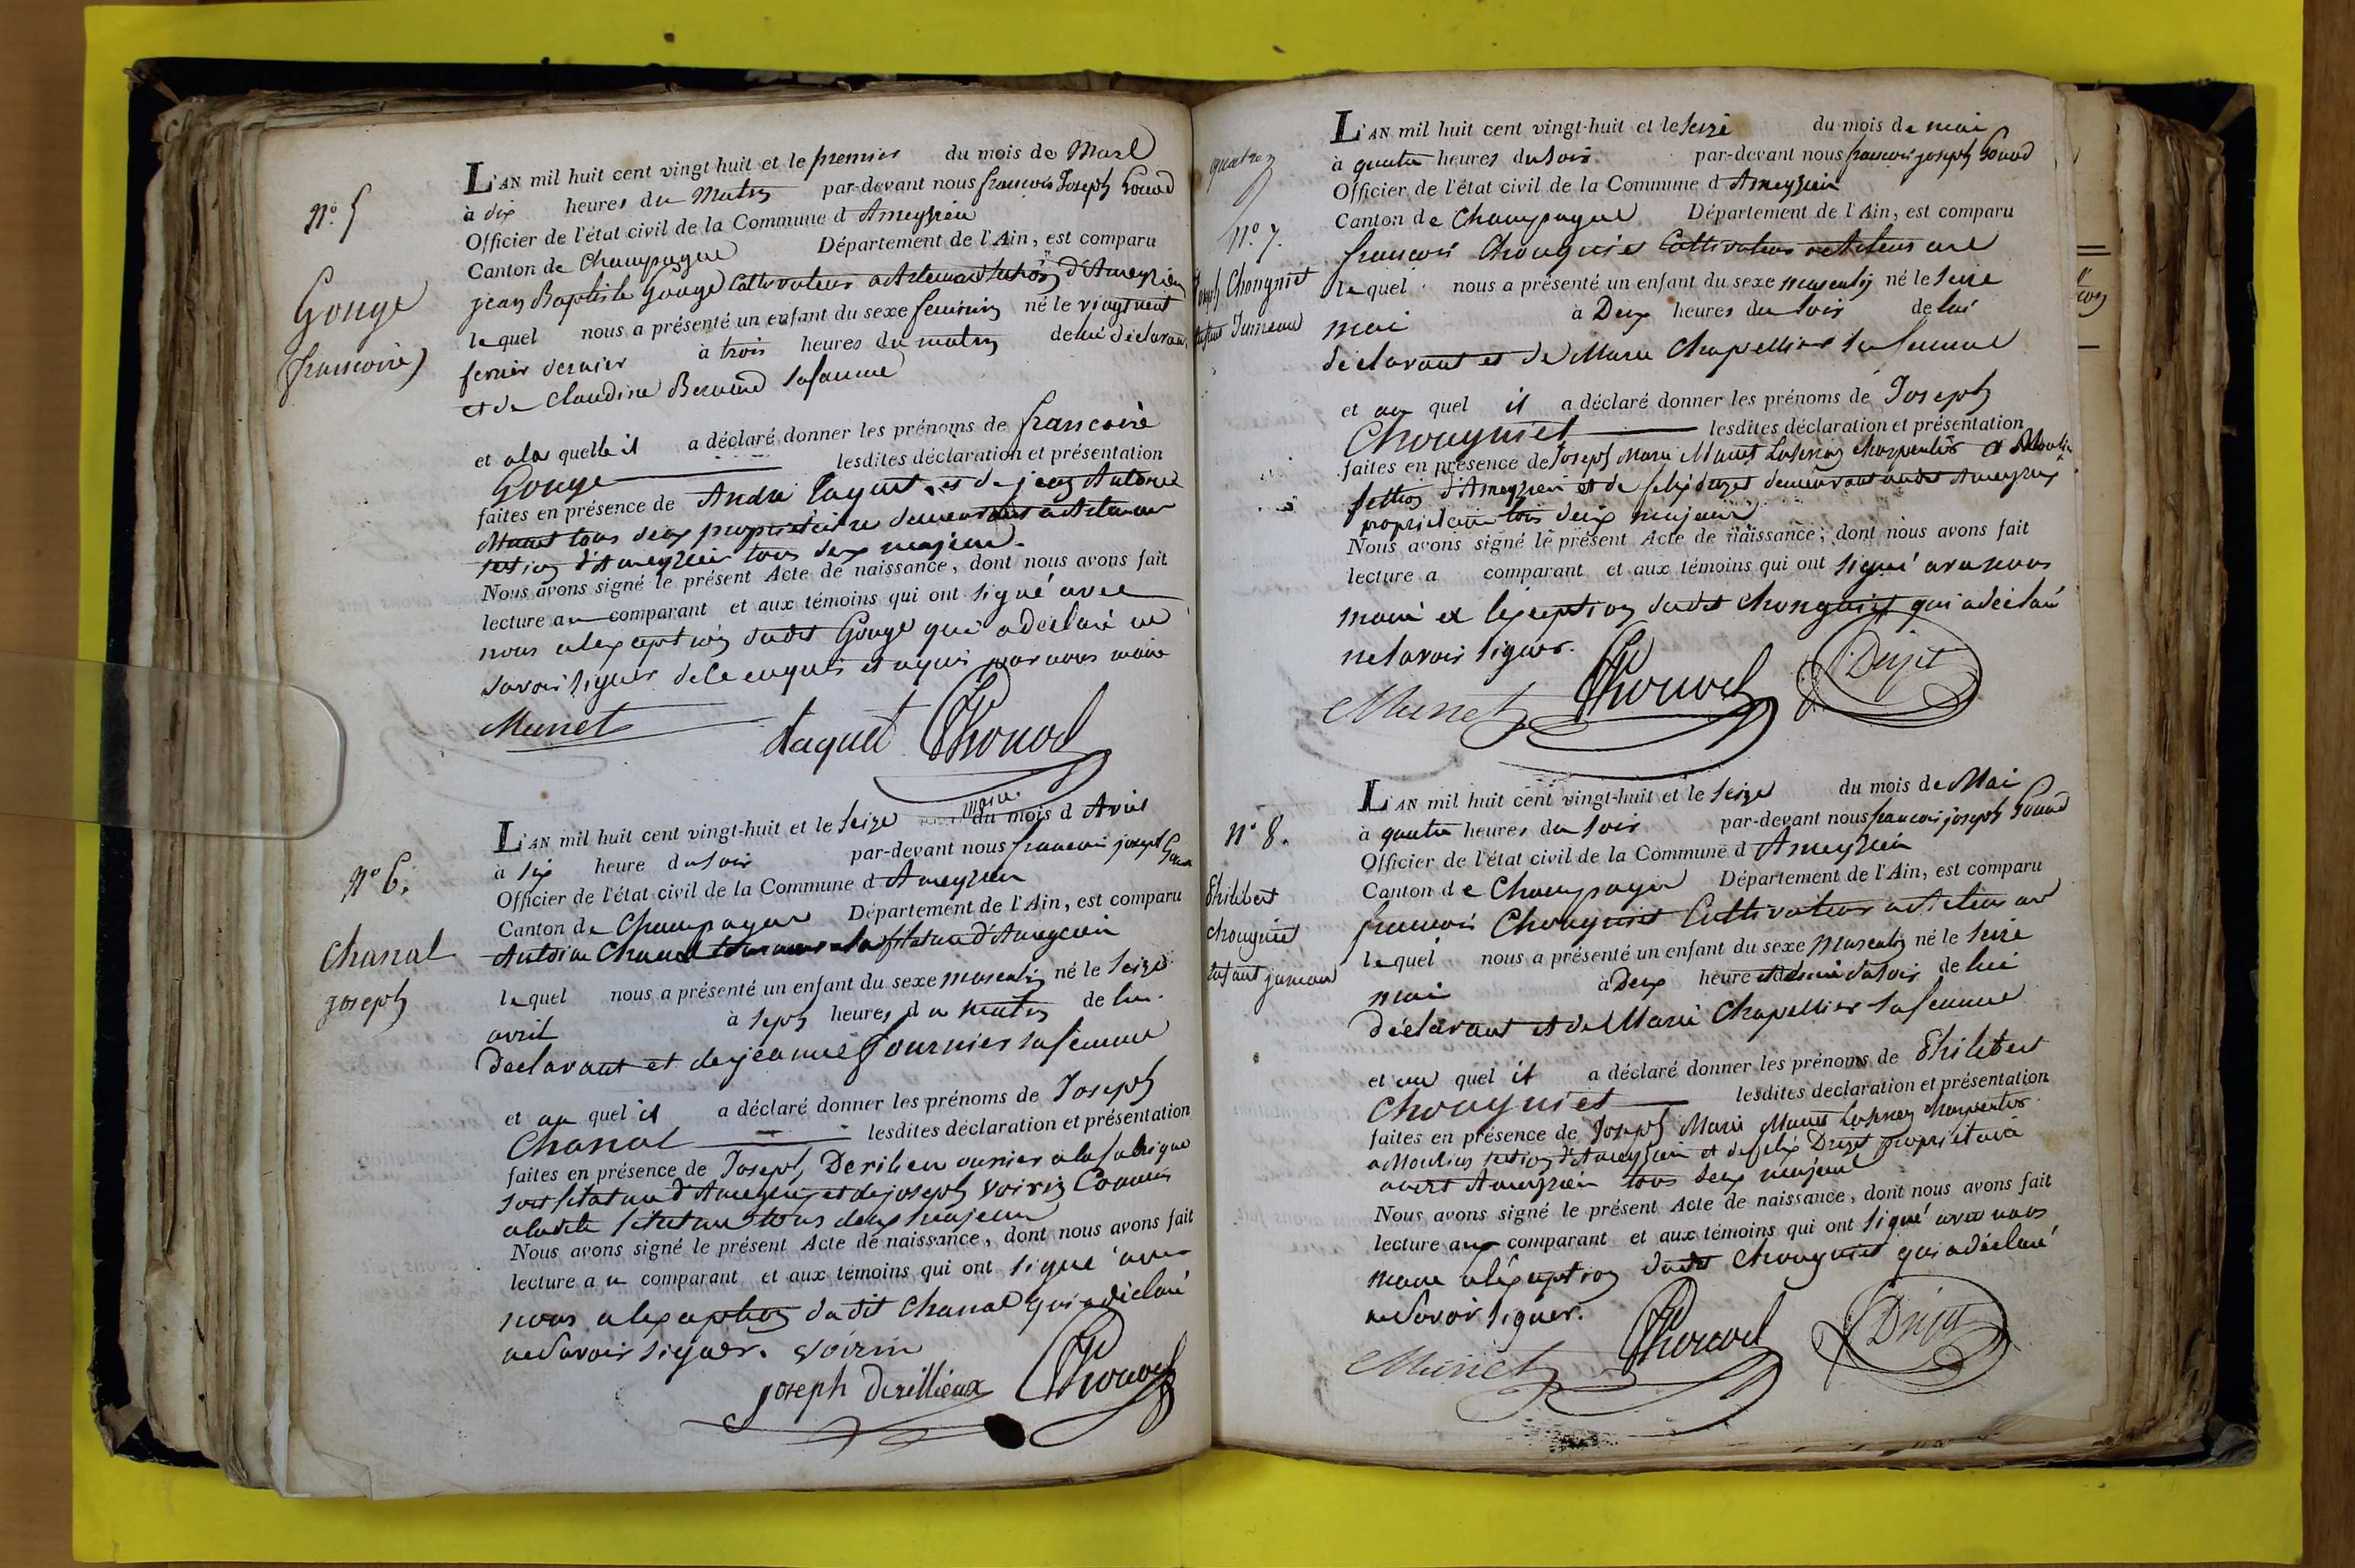 N.º 5
Gouge
(francoise)
L'AN mil huit cent vingt-huit et le premier du mois de Mars
à dix heures du Matin par-devant nous francois Joseph Gonod
Officier de l'état civil de la Commune d Ameyzieu
Canton de Champagne Département de l'Ain, est comparu
jean Baptiste Gouge Cultivateur d'Ameyzieu
lequel nous a présenté un enfant du sexe feminin né le vingt neuf
fevrier dernier à trois heures du matin de lui déclarant
et de Claudine Bernard sa femme
et a la quelle il a déclaré donner les prénoms de francoise
Gouge lesdites déclaration et présentation
faites en présence de André taquet et de jean Antoine
Munet tous deux propriétaire demeurant
section d'Ameyzieu tous deux majeur.
Nous avons signé le présent Acte de naissance, dont nous avons fait
lecture au comparant et aux témoins qui ont signé avec
nous a l'exception dudit Gouge qui a déclaré ne
savoir signer de ce enquis et requis par nous maire
Munet taquet Gonod
maire.
N.º 6.
Chanal
joseph
L'AN mil huit cent vingt-huit et le seize du mois d Avril
à six heure du soir par-devant nous francois joseph Gonod
Officier de l'état civil de la Commune d Ameyzieu
Canton de Champagne Département de l'Ain, est comparu
Antoine Chanal a la filature d'Ameyzieu
lequel nous a présenté un enfant du sexe masculin né le seize
avril à sept heures du matin de lui
declarant et de jeanne fournier sa femme
et au quel il a déclaré donner les prénoms de Joseph
Chanal lesdites déclaration et présentation
faites en présence de Joseph Derilieu ouvrier a la fabrique
d'Ameyzieu et de joseph voirin Commis
a ladite filature tous deux majeur
Nous avons signé le présent Acte de naissance, dont nous avons fait
lecture a u comparant et aux témoins qui ont signé avec
nous a l'exception du dit Chanal qui a déclaré
ne savoir signer. voirin
joseph derillieux Gonod
N.º 7.
Joseph Chougniet
enfant Jumeau
L'AN mil huit cent vingt-huit et le seize du mois de mai
à quatre heures du soir par-devant nous francois joseph Gonod
Officier de l'état civil de la Commune d Ameyzieu
Canton de Champagne Département de l'Ain, est comparu
francois Chougniet Cultivateur
lequel nous a présenté un enfant du sexe masculin né le seize
mai à Deux heures du soir de lui
déclarant et de Marie Chapellier sa femme
et au quel il a déclaré donner les prénoms de Joseph
Chougniet lesdites déclaration et présentation
faites en présence de Joseph Marie Munet charpentier
section d'Ameyzieu et de felix druzet demeurant audit Ameyzieu
proprietaire tous deux majeur
Nous avons signé le présent Acte de naissance, dont nous avons fait
lecture a comparant et aux témoins qui ont signé avec nous
maire a l'exception dudit Chougniet qui a déclaré
ne savoir signer.
Munet Gonod Druzet
N.º 8.
Philibert
chougniet
enfant jumeau
L'AN mil huit cent vingt-huit et le seize du mois de Mai
à quatre heures du soir par-devant nous francois joseph Gonod
Officier de l'état civil de la Commune d Ameyzieu
Canton d e Champagne Département de l'Ain, est comparu
francois Chougniet Cultivateur
lequel nous a présenté un enfant du sexe masculin né le seize
mai à Deux heure et demie du soir de lui
déclarant et de Marie Chapellier sa femme
et au quel il a déclaré donner les prénoms de Philibert
Chougniet lesdites declaration et présentation
faites en présence de Joseph Marie Munet charpentier
a Moulins section d'Ameyzieu et de felix Druzet propriétaire
audit Ameyzieu tous deux majeur
Nous avons signé le présent Acte de naissance, dont nous avons fait
lecture aux comparant et aux témoins qui ont signé avec nous
maire a l'exception dudit Chougniet qui a déclaré
ne savoir signer.
Munet Gonod Druzet